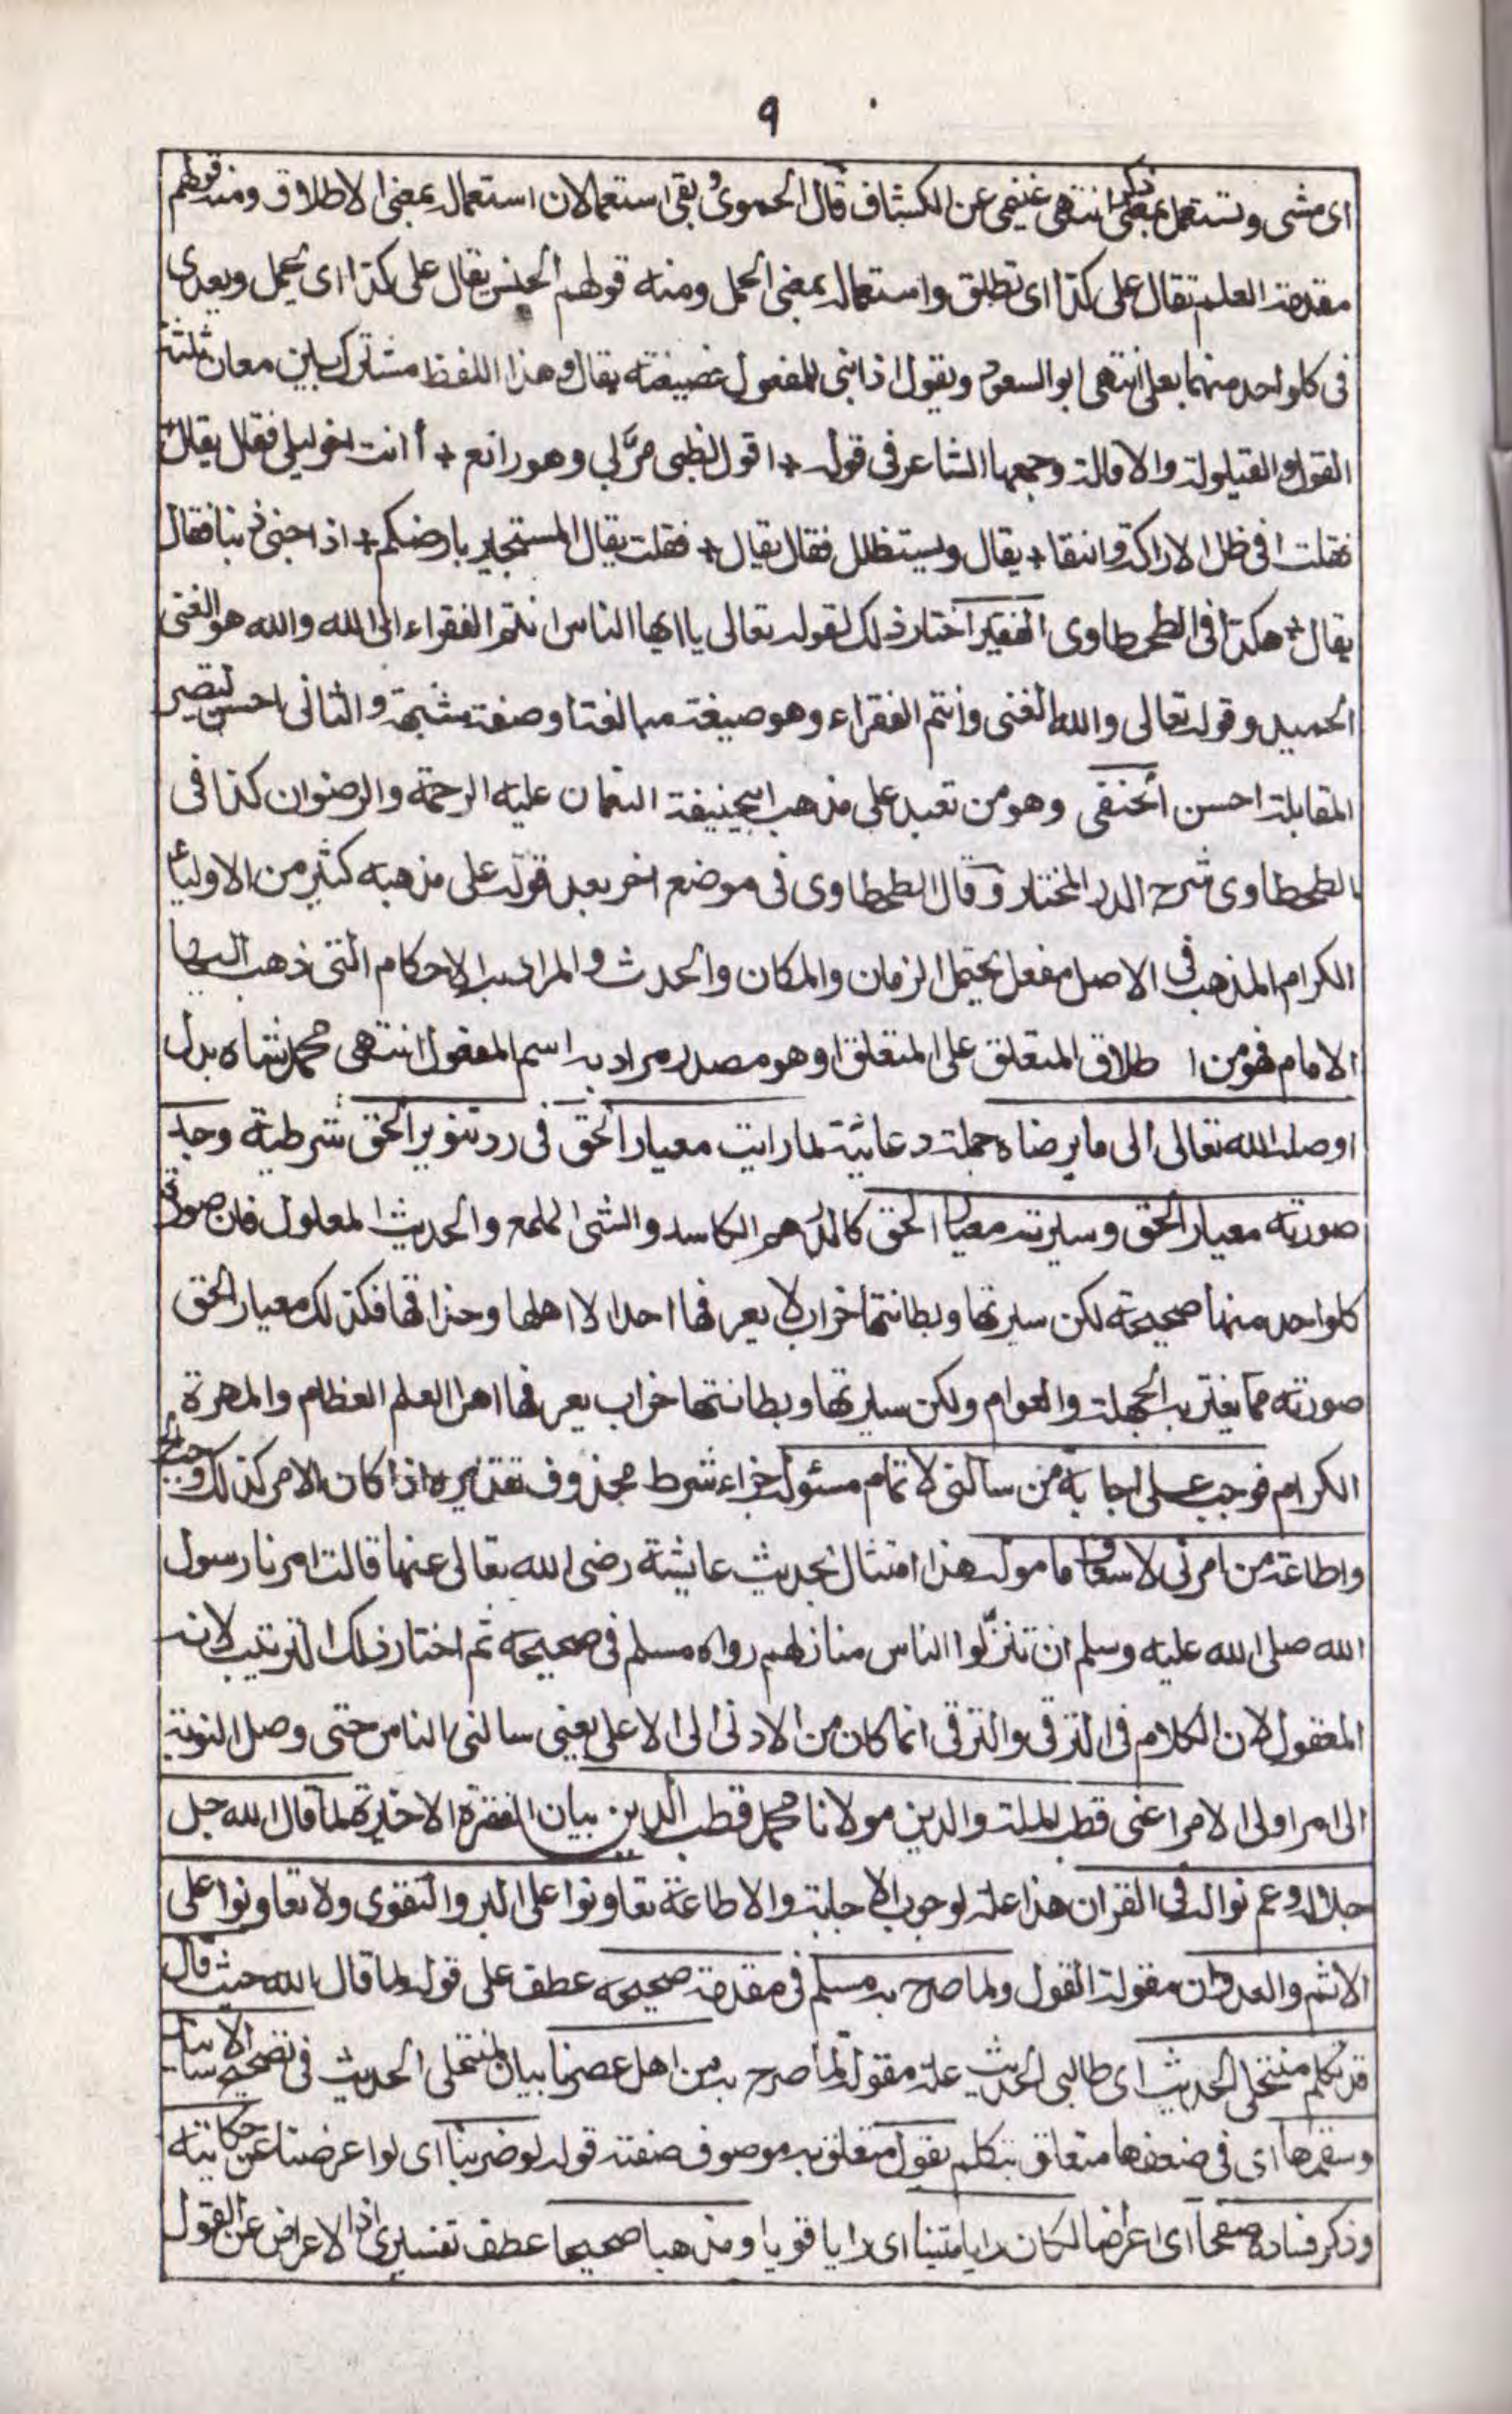 ٩
اى مشى وتستعمل بمعنى ذكر انتهى غنيمى عن الكشاف قال الحموى وبقى استعمالان استعماله بمعنى الاطلاق ومنه قولهم
مقدمة العلم تقال على كذا اى تطلق واستعماله بمعنى الحمل ومنه قولهم الجنس يقال على كذا اى يحمل ويعدى
فى كل واحد منهما بعلى انتهى ابو السعود ويقول اذا بنى للمفعول فصيغته يقال وهذا اللفظ مشترك بين معان ثلثة
القول والقيلولة والاقالة وجمعها الشاعر فى قوله + اقول لظبى مرّ لى وهو راتع + أانت اخو ليلى فقال يقال
فقلت افى ظل الاراكة وانقا + يقال ويستظلل فقال يقال + فقلت يقال المستجير بارضكم + اذا جنى ذنبا فقال
يقال + هكذا فى الطحطاوى الفقير اختار ذلك لقوله تعالى يا ايها الناس انتم الفقراء الى الله والله هو الغنى
الحميد وقوله تعالى والله الغنى وانتم الفقراء وهو صيغة مبالغة او صفة مشبهة والثانى احسن ليصير
المقابلة احسن الحنفى وهو من تعبد على مذهب ابيحنيفة النعمان عليه الرحمة والرضوان كذا فى
الطحطاوى شرح الدر المختار وقال الطحطاوى فى موضع اخر بعد قوله على مذهبه كثير من الاولياء
الكرام المذهب فى الاصل مفعل يحتمل الزمان والمكان والحدث والمراد به الاحكام التى ذهب اليها
الامام فهو من اطلاق المتعلق على المتعلق او هو مصدر مراد به اسم المفعول انتهى محمد شاه بدل
اوصله الله تعالى الى ما يرضاه جملة دعائية لما رايت معيار الحق فى رد تنوير الحق شرطية وجد
صورته معيار الحق وسيرته مضيار الحق كالدرهم الكاسد والشئ الملمع والحديث المعلول فان صورة
كل واحد منها صحيحة لكن سيرتها وبطانتها خراب لا يعرفها احد الا اهلها وحذاقها فكذلك معيار الحق
صورته مما يغتر به الجهلة والعوام ولكن سيرتها وبطانتها خراب يعرفها اهل العلم العظام والمهرة
الكرام فوجب على اجابة من سالنى لاتمام مسئوله جزاء شرط محذوف تقديره اذا كان الامر كذلك وجب على
واطاعة من امرنى لاسعاف ماموله هذا امتثال لحديث عايشة رضى الله تعالى عنها قالت امرنا رسول
الله صلى الله عليه وسلم ان تنزّلوا الناس منازلهم رواه مسلم فى صحيحه ثم اختار ذلك الترتيب لانه
المعقول لان الكلام فى الترقى والترقى انما كان من الادنى الى الاعلى يعنى سالنى الناس حتى وصل النوبة
الى امر اولى الامر اعنى قطب الملة والدين مولانا محمد قطب الدين بيان الفقرة الاخيرة لما قال الله جل
جلاله وعم نواله فى القران هذا علة لوجوب الاجابة والاطاعة تعاونوا على البر والتقوى ولا تعاونوا على
الاثم والعدوان مقولة القول ولما صرح به مسلم فى مقدمة صحيحه عطف على قوله لما قال الله حيث قال
قد تكلم منتحلى الحديث اى طالبى الحديث علة مقولة لما صرح به من اهل عصرنا بيان لمنتحلى الحديث فى تصحيح الاسانيد
وسقمها اى فى ضعفها متعلق بتكلم بقول متعلق به موصوف صفته قوله لو ضربنا اى لو اعرضنا عن حكايته
وذكر فساده صفحا اى اعراضا لكان رايا متينا اى رايا قويا ومذهبا صحيحا عطف تفسيرى اذ الاعراض عن القول